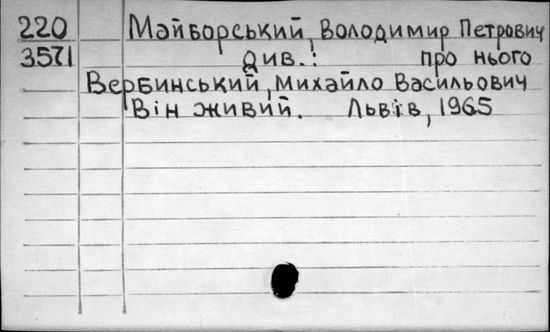 220 Майборський, Володимир Петрович
3571 див.: про нього
Вербинський, Михайло Васильович
Він живий. Львів, 1965